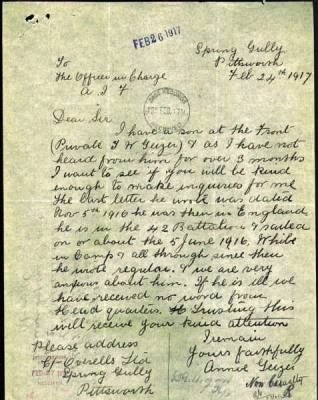 FEB 26 1917
Spring Gully
Pittsworth
Feb 24th 1917
To
The Officer in Charge
A I F
Dear Sir
I have a son at the Front
(Private T W Geizer) & as I have not
heard from him for over 3 months
I want to see if you will be kind
enough to make inquiries for me
the last letter he wrote was dated
Nov 5th 1916 he was then in England
he is in the 42 Battalion & sailed
on or about the 5 June 1916. While
in Camp & all through since then
he wrote regular. & we are very
anxious about him. If he is ill we
have received no word from
Head quarters. Trusting this
will receive your kind attention
I remain
Yours faithfully
Annie Geizer
Please address
C/- Ltd
Spring Gully
Pittsworth